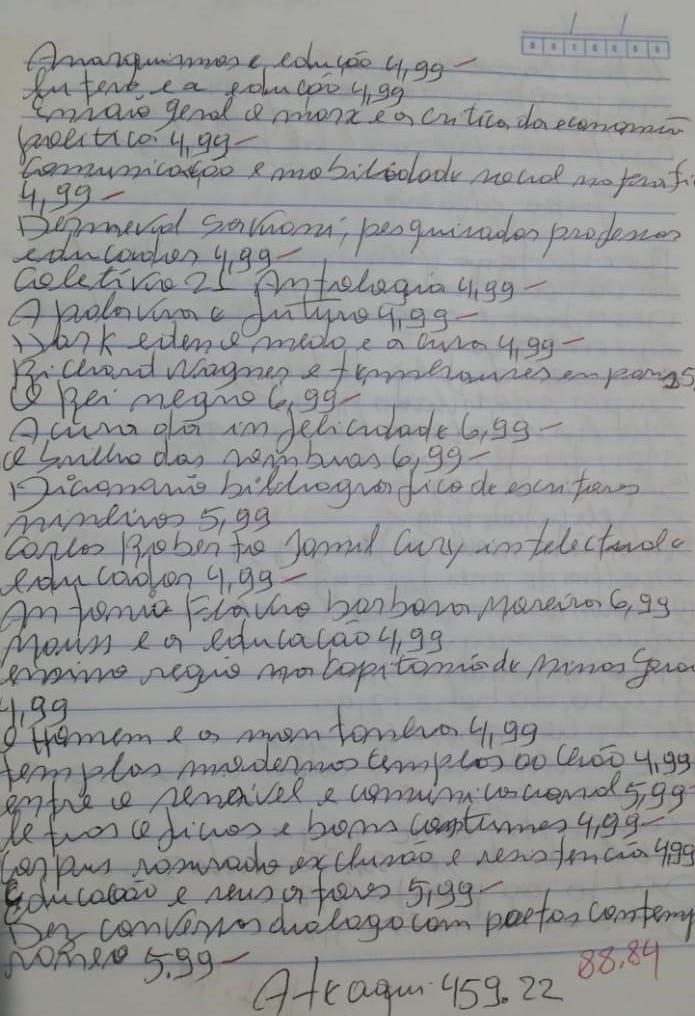 Anarquismos e edução 4,99 -
Lutero e a edução 4,99
Ensaio geral o marx e a critica da economia
politica 4,99 -
Comunicação e mobilidade social na
4,99 -
Dermeval Saviani, pesquisador professor
educador 4,99 -
Coletivo 21 Antologia 4,99 -
A palavra e futuro 4,99 -
Dark eden o medo e a cura 4,99 -
Richard Wagner e em paris
O Rei negro 6,99 -
A cura da infelicidade 6,99 -
O brilho das sombras 6,99 -
Dicionario bibliografico de escritores
mineiros 5,99
Carlos Roberto Jamil Cury intelectual e
educador 4,99 -
Antonio Flavio barbosa Moreira 6,99
Mauss e a educacão 4,99
ensino regio na Capitania de Minas Gera
4,99
O Homem e a montanha 4,99
templos modernos templos ao chão 4,99
entre o sensivel e comunicacional 5,99 -
letras oficios e bons costumes 4,99 -
Corpus rasurado exclusão e resistencia 4,99
Educacão e seus atores 5,99 -
Dez conversas dialogo com poetas contemp
5.99 -
88.84
Ate aqui 459.22